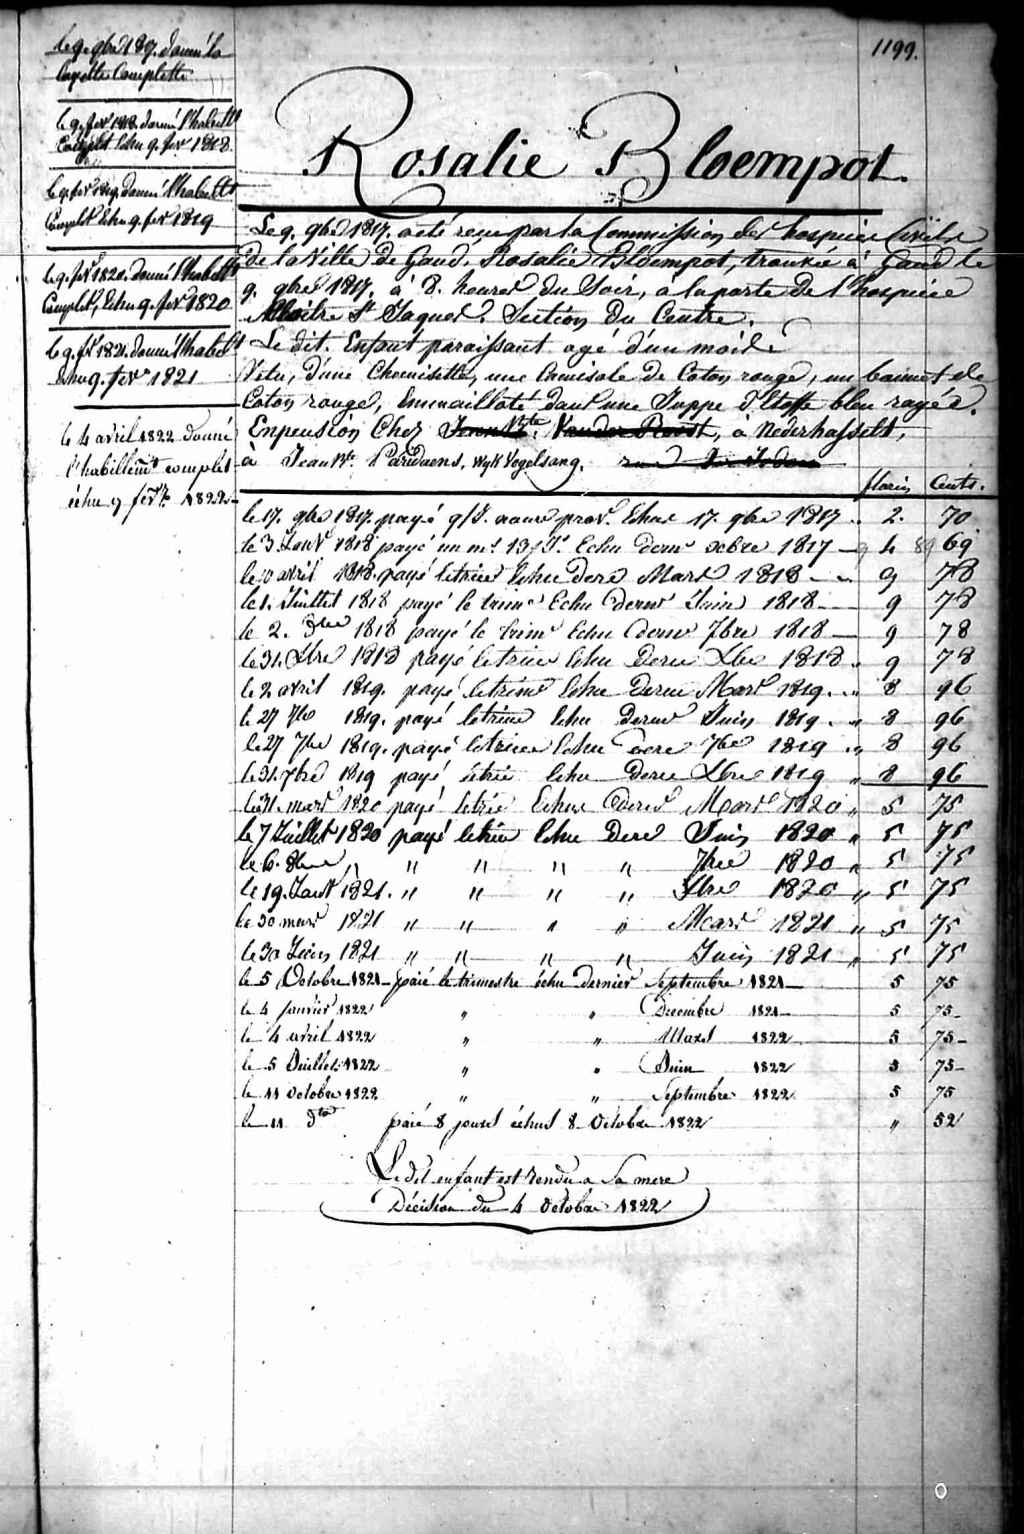 1199.
le 9 9bre 1817. donné la
layette Complette
le 9. fevr 1818. donné l'habillt
Complet Echu 9. fevr 1818
le 9. fevr 1819. donné l'habillt
Complet Echu 9. fevr 1819
le 9. fevr 1820. donné l'habillt
Complet, Echu 9. fevr 1820
le 9. fr 1821. donné l'habillt
Echu 9. fevr 1821
le 4 avril 1822 donné
l'habillemt complet
échu 9 fevr 1822
Rosalie Bloempot.
Le 9. 9bre 1817. acté reçu par la Commission des hospices Civils
De la Ville de Gand. Rosalie Bloempot, trouvée à Gand le
9. 9bre 1817. à 8. heures du Soir, a la porte De l'hospice
St Jaques. Section Du Centre.
Le dit. Enfant paraissant agé d'un mois
Vetu, d'une Chemisette, une Camisole de Coton rouge, un bainet de
Coton rouge, Emmailloté dans une Juppe d'Etoffe bleu rayée.
En pension Chez Jean Bte Van der Roost, à Nederhasselt,
à Jean Bt. Paridaens, Wyk Vogelsang.
florins Cents.
le 17. 9bre 1817. payé Echu 17. 9bre 1817 2. 70
le 3 Janvr 1818 payé un ms 13 Js Echu dernr xcbre 1817 — 4 69
le avril 1818. payé le trime Echu Dere Mars 1818 — 9 78
le 1. Juillet 1818 payé le trime Echu dernr Juin 1818 — 9 78
le 2. 8bre 1818 payé le trime Echu dernr 7bre 1818 — 9 78
le 31. Xbre 1818 payé le trime Echu Derne Xbre 1818 " 9 78
le 2 avril 1819. payé le trime Echu derne Mars 1819. " 8 96
le 27 7bre 1819. payé le trime Echu dernr Juin 1819. " 8 96
le 27 7bre 1819. payé le trime Echu dere 7bre 1819 " 8 96
le 31. 1819 payé le trie Echu derne Xbre 1819 " 8 96
le 31. mars 1820 payé le trie Echu dernr Mars 1820 " 5 75
le 7 Juillet 1820 payé le trie Echu Dere Juin 1820 " 5 75
le 6. 8bre " " " " " 7bre 1820 " 5 75
le 19. Janvr 1821. " " " " Xbre 1820 " 5 75
le 30 mars 1821 " " " " Mars 1821 " 5 75
le 30 Juin 1821 " " " " Juin 1821 " 5 75
le 5 Octobre 1821 - paié le trimestre échu dernier Septembre 1821 — 5 75
le 4 janvier 1822 " " Décembre 1821 — 5 75 -
le 4 avril 1822 " " Mars 1822 5 75 -
le 5 Juillet 1822 " " Juin 1822 5 75 -
le 11 Octobre 1822 " " Septembre 1822 5 75
le 11 dto paié 8 jours échus 8 Octobre 1822 " 52
Le dit enfant est rendu a sa mere
Décision du 4 Octobre 1822